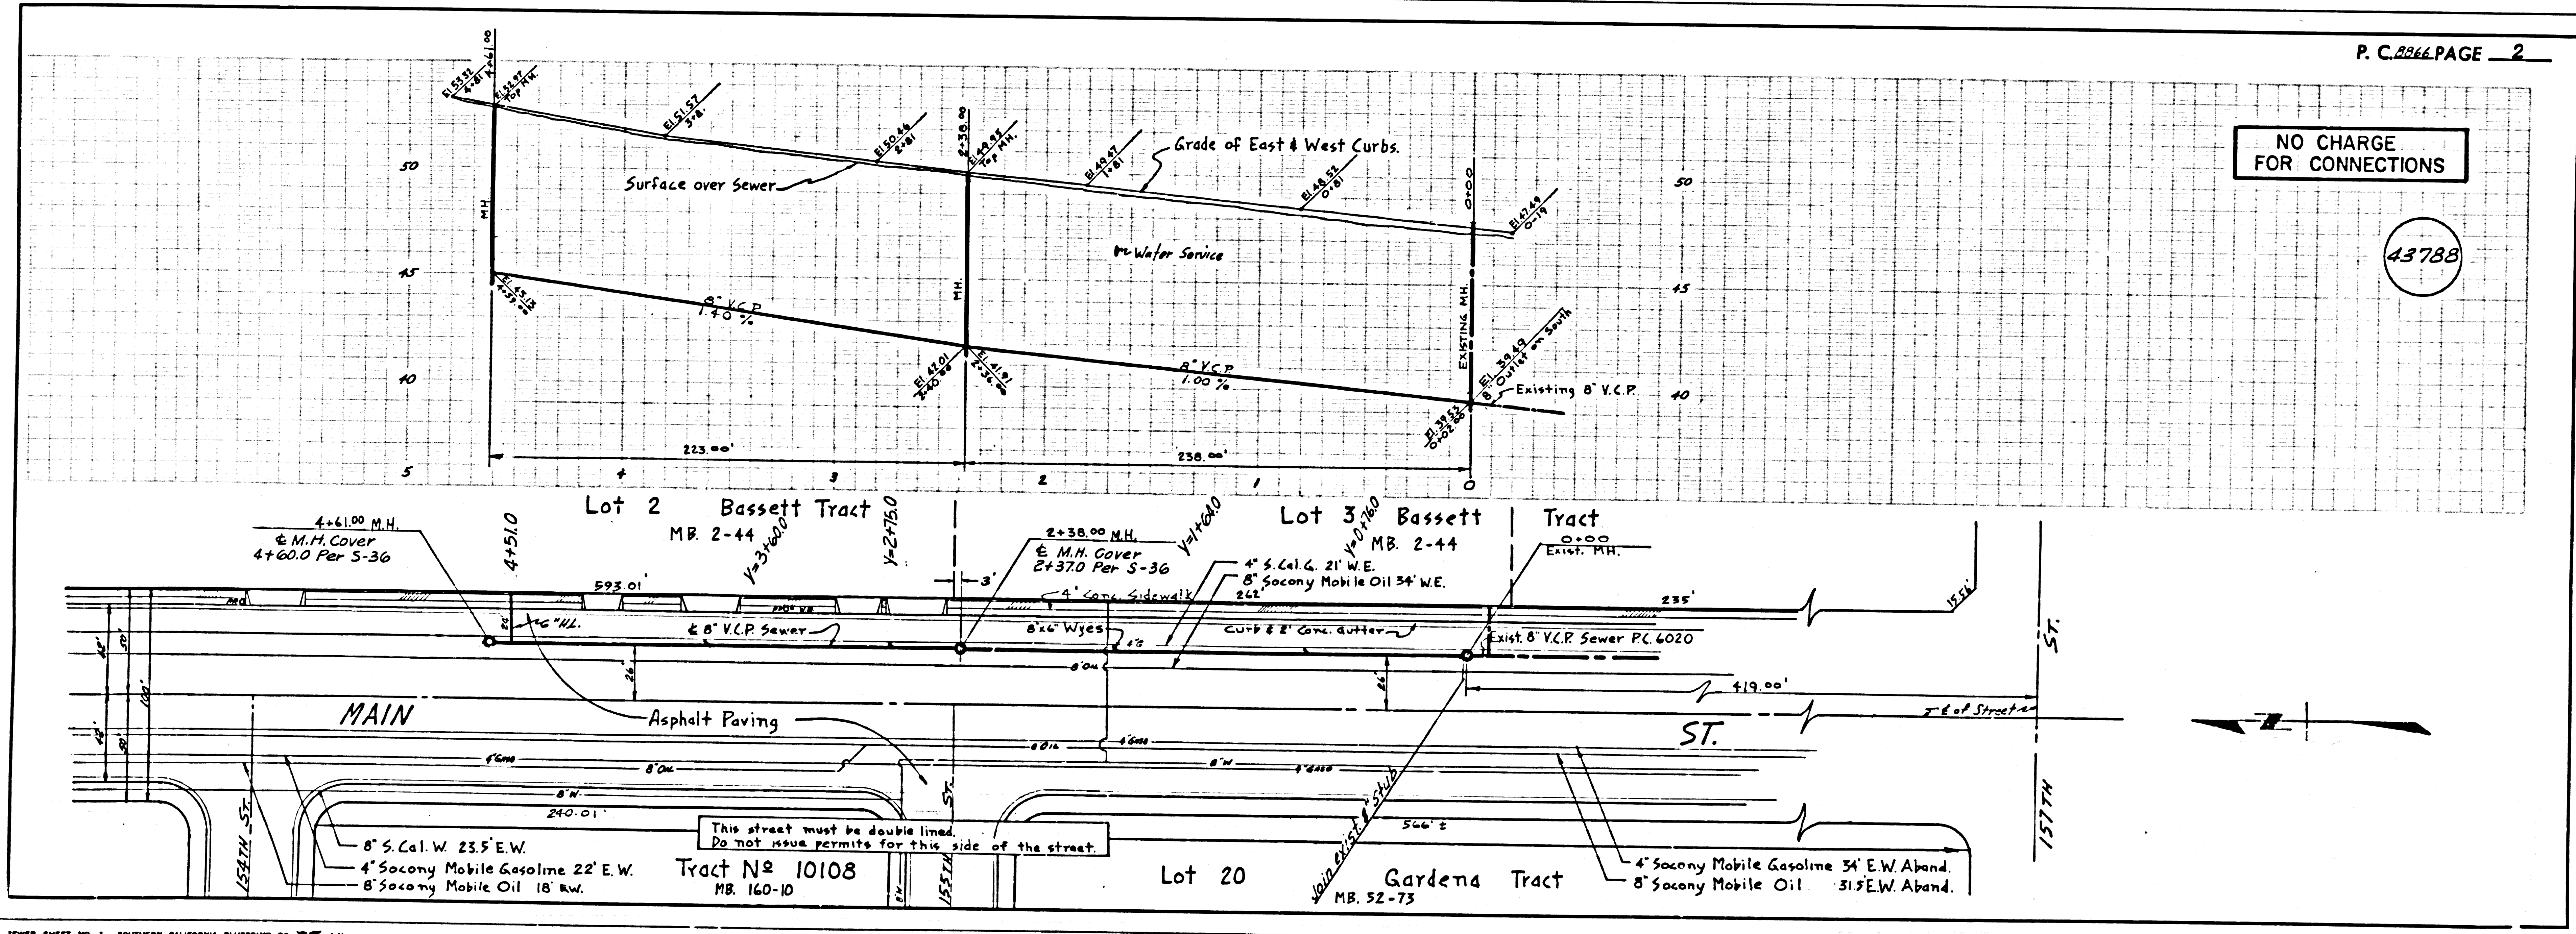 P. C. 8866 PAGE 2
NO CHARGE
FOR CONNECTIONS
43788
El. 53.32
4+81
4+61.00
El. 52.97
Top MH.
El. 51.57
El. 50.46
2+81
2+38.00
El. 49.95
Top MH.
El. 49.47
1+81
Grade of East & West Curbs.
El. 48.52
0+81
0+00
El. 47.49
0-19
Surface over Sewer
Water Service
50
45
40
50
45
40
MH.
MH.
EXISTING MH.
El. 45.13
4+59.00
8" V.C.P.
1.40 %
El. 42.01
2+40.00
El. 41.91
2+36.00
8" V.C.P.
1.00 %
El. 39.49
8" Outlet on South
Existing 8" V.C.P.
El. 39.53
0+02.00
223.00'
238.00'
5
4
3
2
1
0
Lot 2 Bassett Tract
MB. 2-44
Lot 3 Bassett Tract
MB. 2-44
4+61.00 M.H.
₵ M.H. Cover
4+60.0 Per S-36
4+51.0
Y=3+60.0
Y=2+75.0
2+38.00 M.H.
₵ M.H. Cover
2+37.0 Per S-36
Y=1+64.0
Y=0+76.0
0+00
Exist. MH.
4" S.Cal.G. 21' W.E.
8" Socony Mobile Oil 34' W.E.
593.01'
3'
4' Conc. Sidewalk
262'
235'
15.56'
26'
6" H.L.
₵ 8" V.C.P. Sewer
8"x6" Wyes
4"G
Curb & 2' Conc. Gutter
Exist. 8" V.C.P. Sewer P.C. 6020
8" OIL
26'
26'
419.00'
₵ of Street
50'
100'
50'
MAIN
ST.
Asphalt Paving
4" GASO
8" OIL
8" W
240.01'
4" GASO
8" W
4" GASO
566' ±
This street must be double lined.
Do not issue permits for this side of the street.
8" S.Cal. W. 23.5' E.W.
4" Socony Mobile Gasoline 22' E.W.
8" Socony Mobile Oil 18' E.W.
154TH ST.
Tract No 10108
MB. 160-10
155TH ST.
Lot 20 Gardena Tract
MB. 52-73
Join exist. 8" Stub
4" Socony Mobile Gasoline 34' E.W. Aband.
8" Socony Mobile Oil 31.5' E.W. Aband.
157TH ST.
SEWER SHEET NO. 1 SOUTHERN CALIFORNIA BLUEPRINT CO.